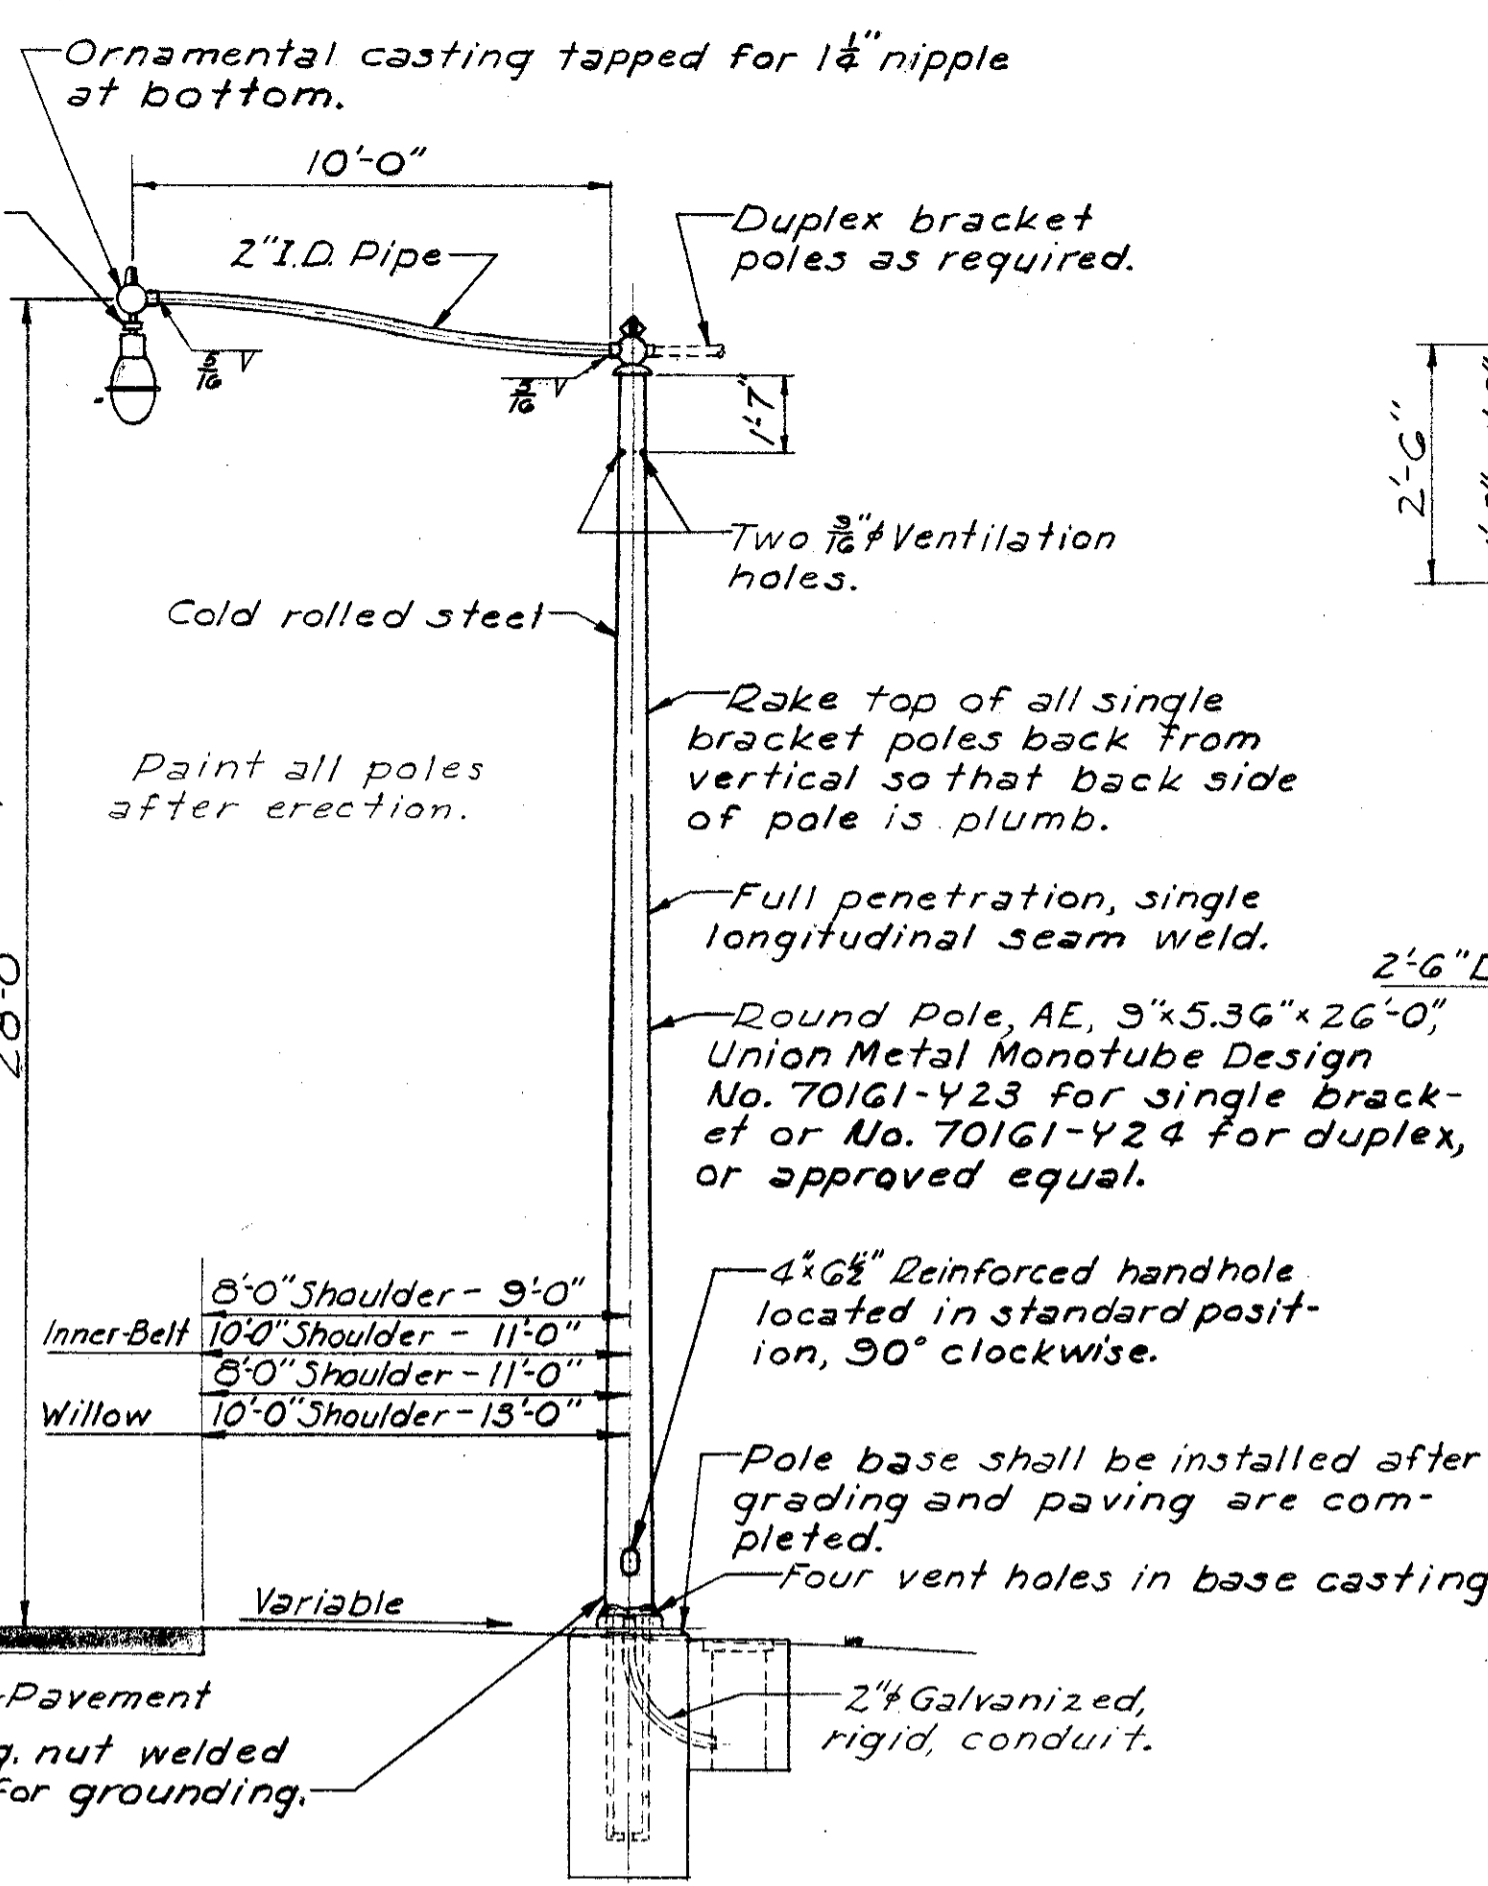 Ornamental casting tapped for 1¼" nipple
at bottom.
10'-0"
2" I.D. Pipe
Duplex bracket
poles as required.
5/16 V
5/16 V
1'-7"
2'-6"
Two 9/16"ϕ Ventilation
holes.
Cold rolled steel
Rake top of all single
bracket poles back from
vertical so that back side
of pole is plumb.
Paint all poles
after erection.
Full penetration, single
longitudinal seam weld.
28'-0
2'-6"
Round Pole, AE, 9"x5.36"x26'-0",
Union Metal Monotube Design
No. 70161-Y23 for single brack-
et or No. 70161-Y24 for duplex,
or approved equal.
8'-0" Shoulder - 9'-0"
Inner-Belt 10'-0" Shoulder - 11'-0"
8'-0" Shoulder - 11'-0"
Willow 10'-0" Shoulder - 13'-0"
4"x6½" Reinforced handhole
located in standard posit-
ion, 90° clockwise.
Pole base shall be installed after
grading and paving are com-
pleted.
Four vent holes in base casting
Variable
Pavement
nut welded
for grounding.
2"ϕ Galvanized,
rigid, conduit.